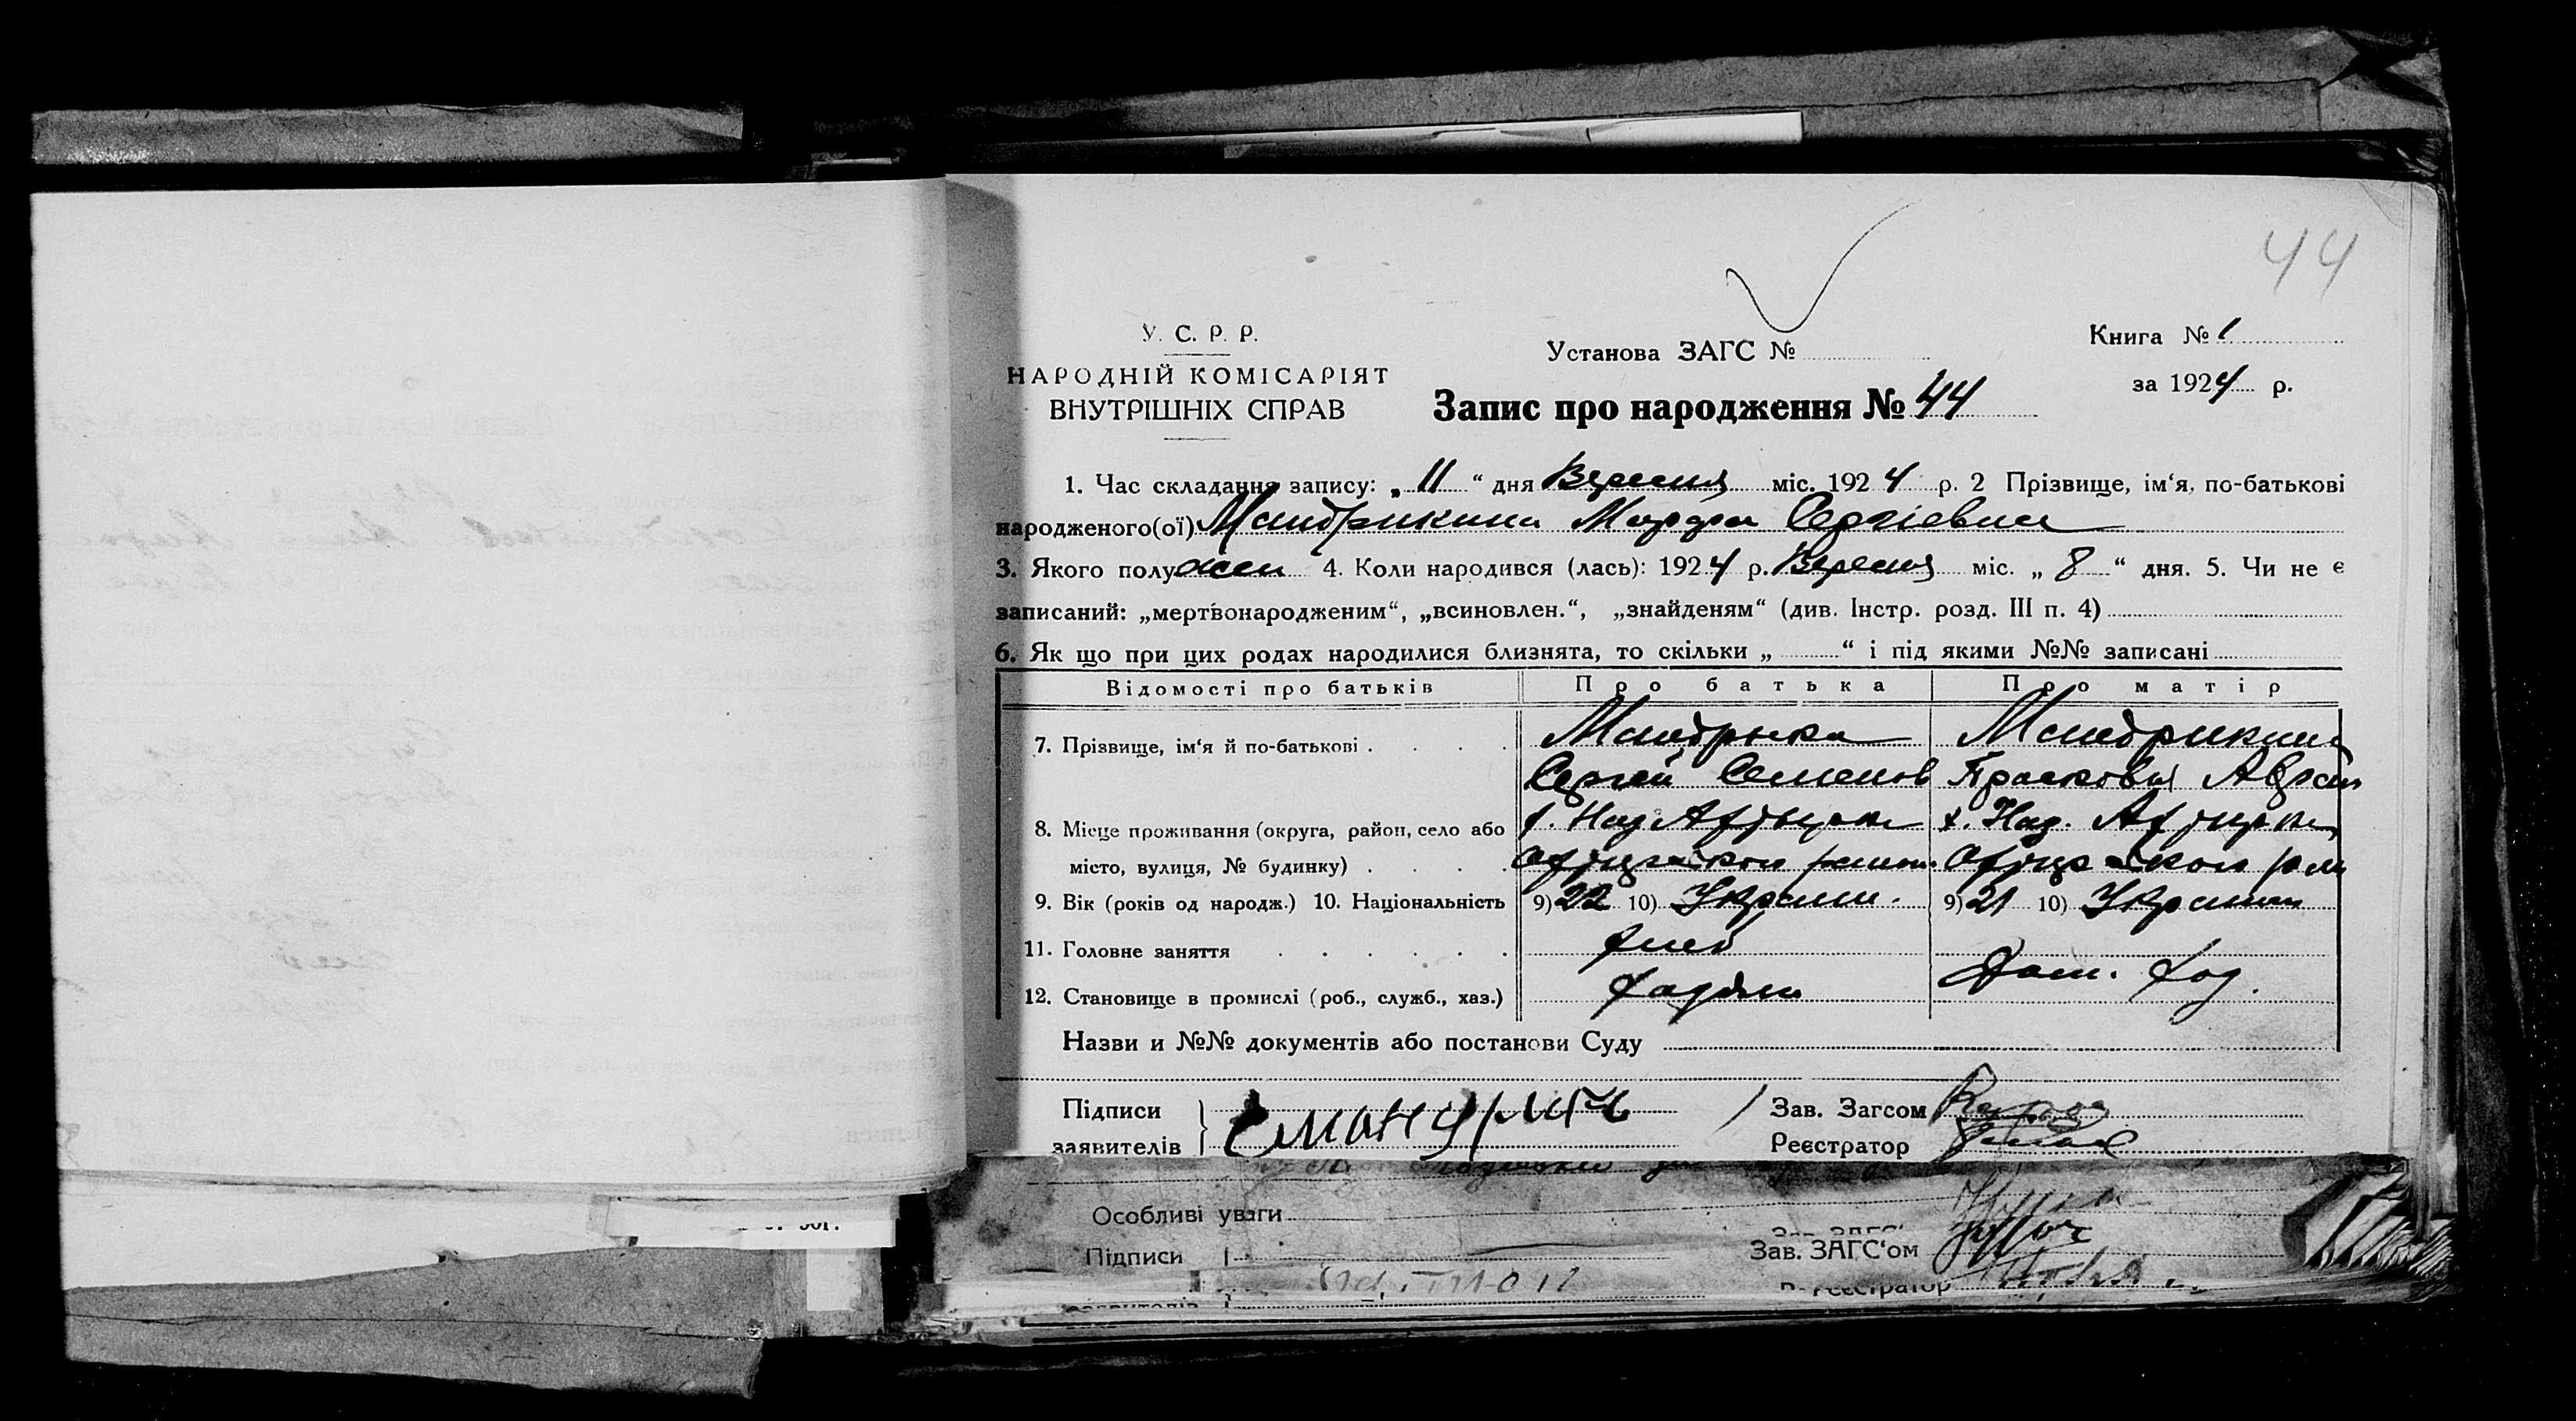 44
У. С. Р. Р.
НАРОДНІЙ КОМІСАРІЯТ
ВНУТРІШНІХ СПРАВ
Установа ЗАГС №
Книга № 1
за 1924 р.
Запис про народження № 44
1. Час складання запису: „ 11 “ дня Вересня міс. 1924 р. 2 Прізвище, ім‘я, по-батькові
народженого(ої) Мандрикина Марфа Сергієвна
3. Якого полу жен 4. Коли народився (лась): 1924 р. Вересня міс. „ 8 “ дня. 5. Чи не є
записаний: „мертвонародженим“, „всиновлен.“, „знайденям“ (див. Інстр. розд. III п. 4)
6. Як що при цих родах народилися близнята, то скільки „ “ і під якими №№ записані
Відомості про батьків Про батька Про матір
7. Прізвище, ім‘я й по-батькові . . . . Мандрыка Мандрикина
Сергей Семенов Прасковья
8. Місце проживання (округа, район, село або
місто, вулиця, № будинку) . . . .
9. Вік (років од народж.) 10. Національність 9) 22 10) Украин. 9) 21 10) Украин
11. Головне заняття . . . . . . хлеб
12. Становище в промислі (роб., служб., хаз.) хазяин Дом. хоз.
Назви и №№ документів або постанови Суду
Підписи
заявителів
Зав. Загсом
Реєстратор
Особливі уваги
Підписи
Зав. ЗАГС‘ом
Реєстратор